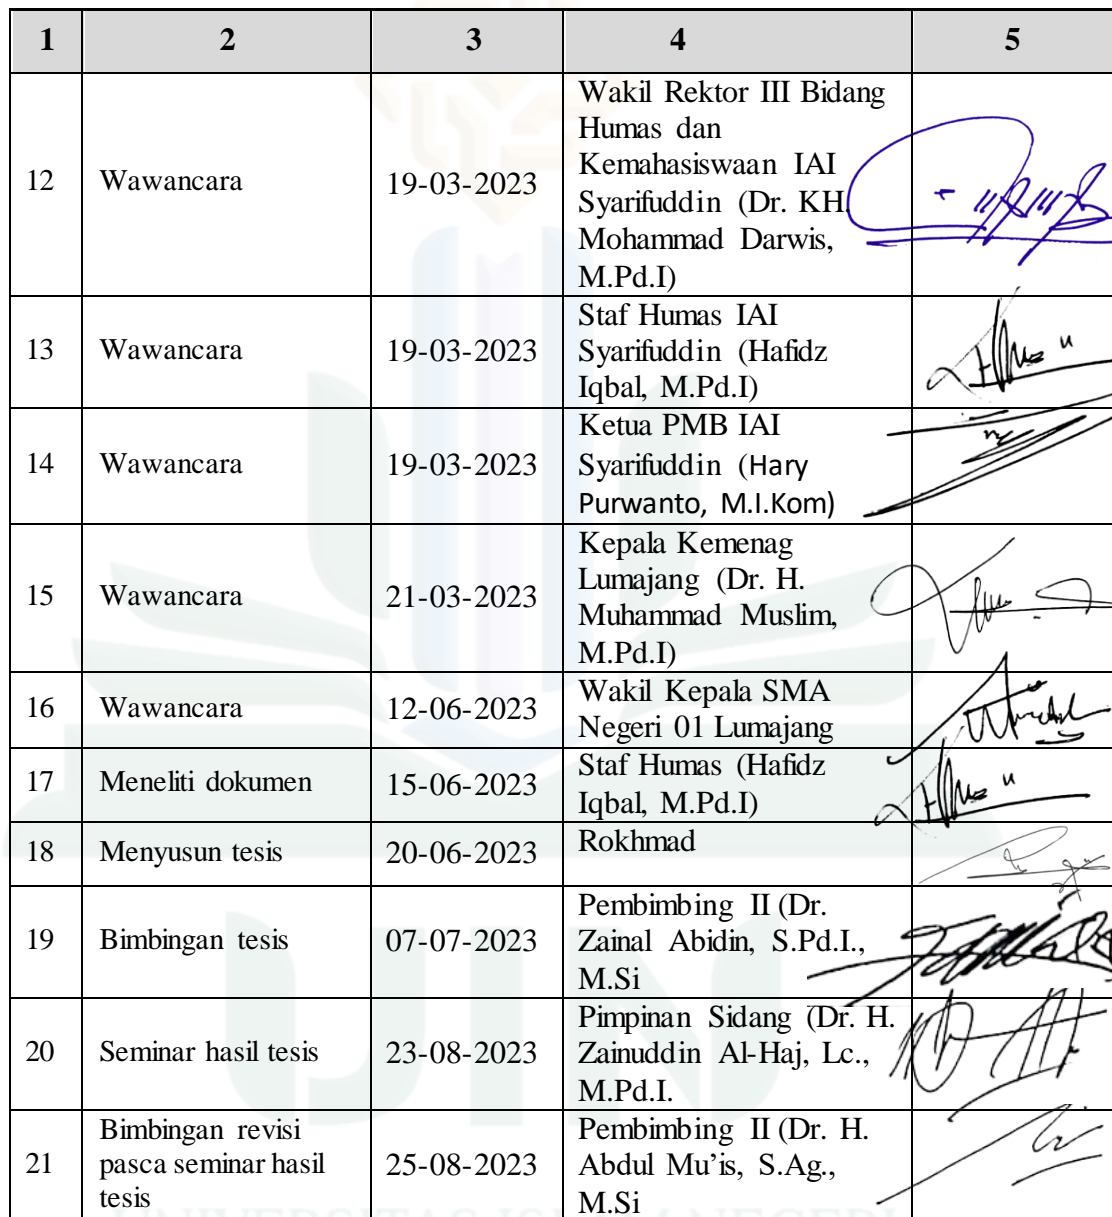 1 2 3 4 5
12 Wawancara 19-03-2023 Wakil Rektor III Bidang
Humas dan
Kemahasiswaan IAI
Syarifuddin (Dr. KH.
Mohammad Darwis,
M.Pd.I)
13 Wawancara 19-03-2023 Staf Humas IAI
Syarifuddin (Hafidz
Iqbal, M.Pd.I)
14 Wawancara 19-03-2023 Ketua PMB IAI
Syarifuddin (Hary
Purwanto, M.I.Kom)
15 Wawancara 21-03-2023 Kepala Kemenag
Lumajang (Dr. H.
Muhammad Muslim,
M.Pd.I)
16 Wawancara 12-06-2023 Wakil Kepala SMA
Negeri 01 Lumajang
17 Meneliti dokumen 15-06-2023 Staf Humas (Hafidz
Iqbal, M.Pd.I)
18 Menyusun tesis 20-06-2023 Rokhmad
19 Bimbingan tesis 07-07-2023 Pembimbing II (Dr.
Zainal Abidin, S.Pd.I.,
M.Si
20 Seminar hasil tesis 23-08-2023 Pimpinan Sidang (Dr. H.
Zainuddin Al-Haj, Lc.,
M.Pd.I.
21 Bimbingan revisi
pasca seminar hasil
tesis 25-08-2023 Pembimbing II (Dr. H.
Abdul Mu'is, S.Ag.,
M.Si
UIN
UNIVERSITAS ISLAM NEGERI